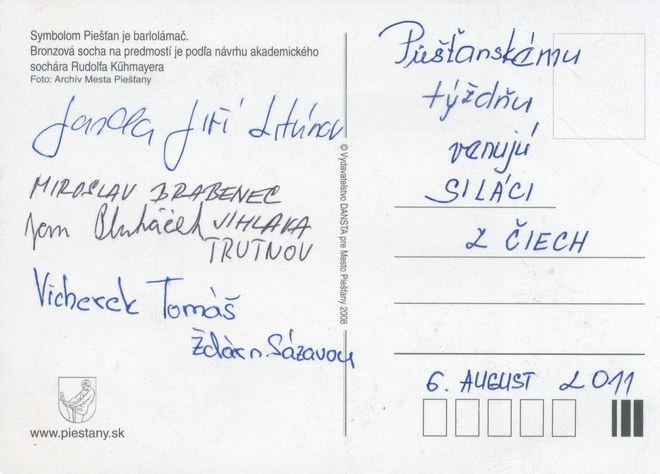 Symbolom Piešťan je barlolámač.
Bronzová socha na predmostí je podľa návrhu akademického
sochára Rudolfa Kühmayera
Foto: Archív Mesta Piešťany
Jiří
MIROSLAV BRABENEC
Jan JIHLAVA
TRUTNOV
Vicherek Tomáš
Žďár n. Sázavou
www.piestany.sk
© Vydavateľstvo DANSTA pre Mesto Piešťany 2008
Piešťanskému
týždňu
venujú
SILÁCI
Z ČIECH
6. AUGUST 2011